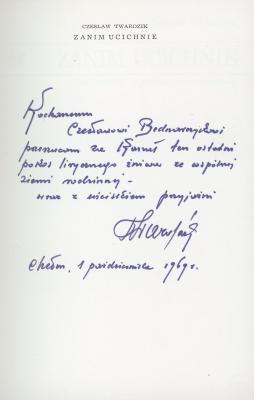 CZESŁAW TWARDZIK
ZANIM UCICHNIE
Kochanemu
Czesławowi Bednarczykowi
przerzucam za Kanał ten ostatni
pokos lirycznego żniwa ze wspólnej
ziemi rodzinnej -
wraz z uściskiem przyjaźni
Chełm, 1 października 1969 r.